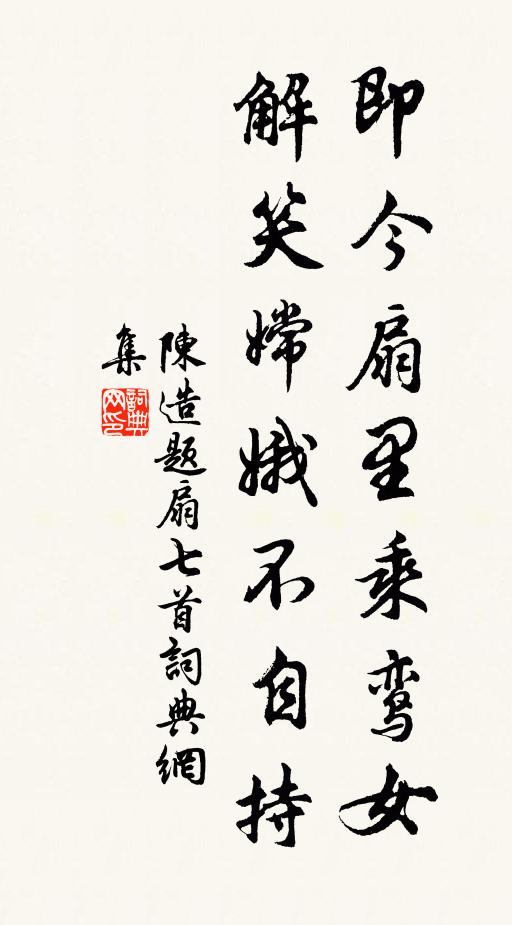 即今扇里乘鸾女
解笑嫦娥不自持
陳造题扇七首詞典網
集
詞典
网印